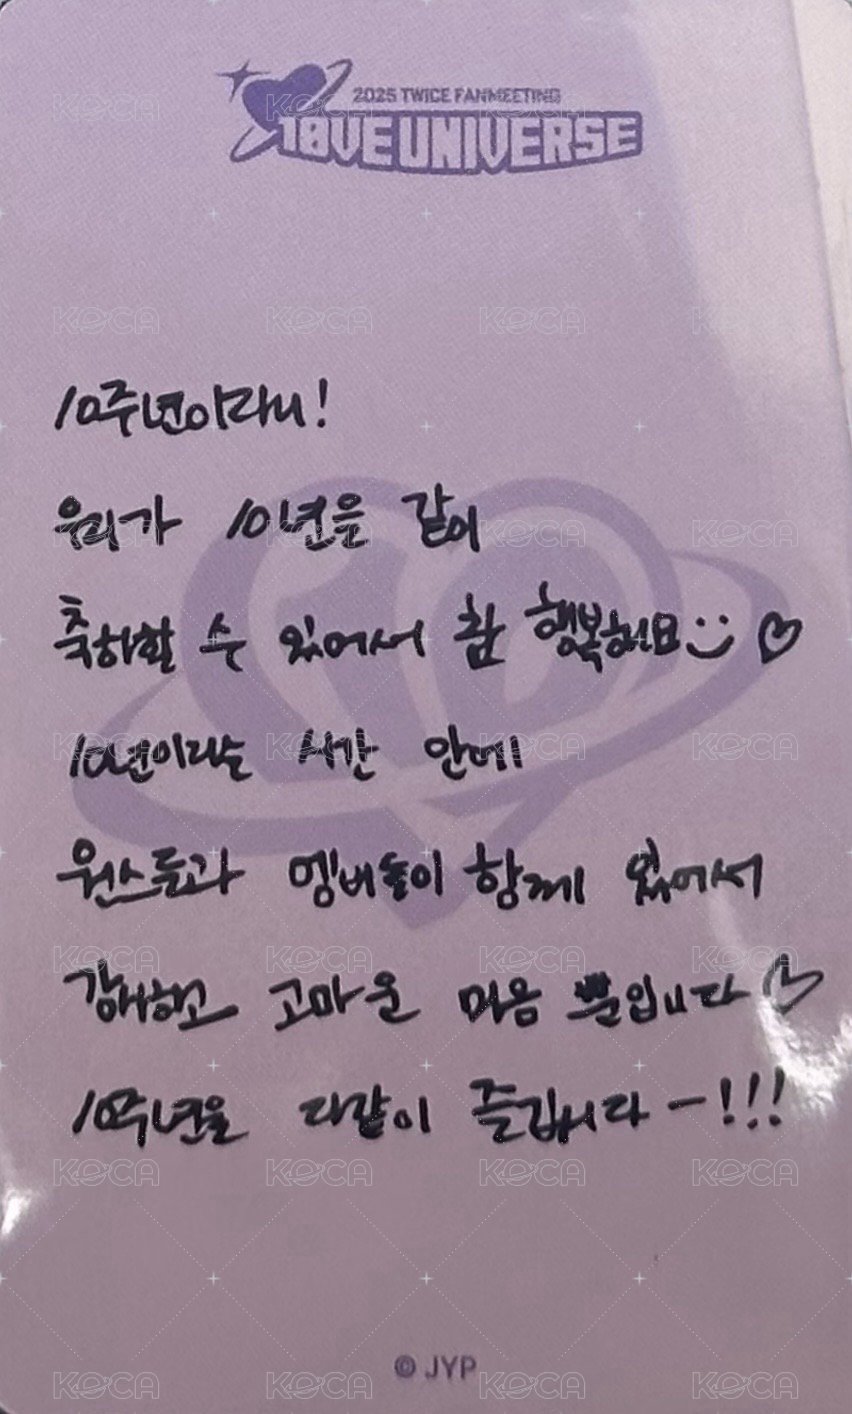 2025 TWICE FANMEETING
10VE UNIVERSE
10주년이라니!
우리가 10년을 같이
축하할 수 있어서 참 행복해요
10년이라는 시간 안에
원스들과 멤버들이 함께 있어서
감사하고 고마운 마음 뿐입니다
10주년을 다같이 즐깁시다-!!!
© JYP
KOCA